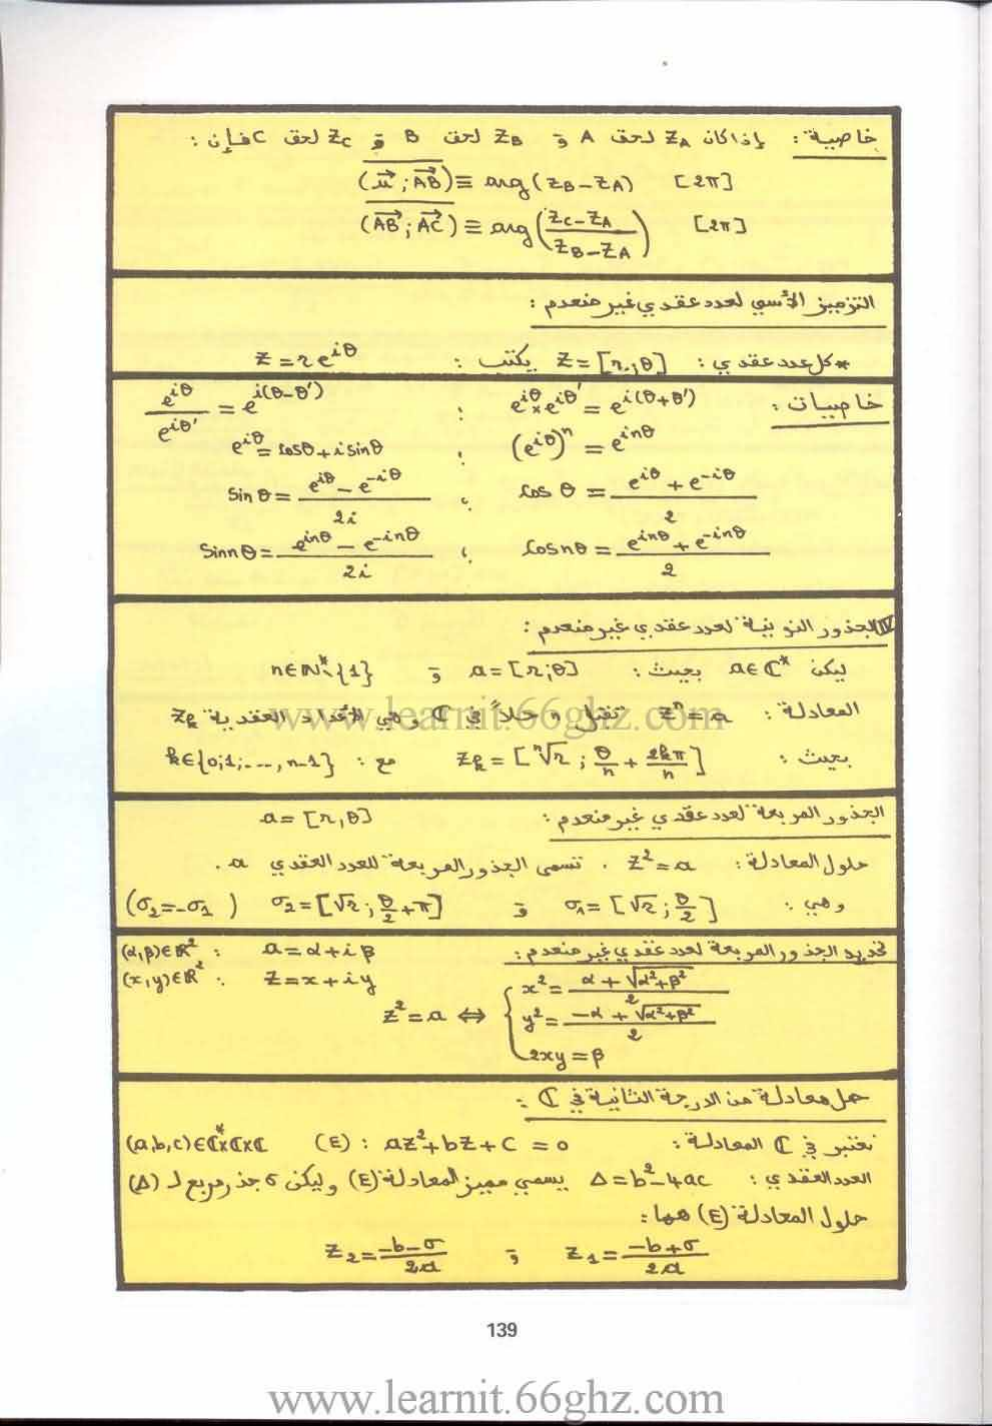 خاصية : إذا كان z_A لحق A و z_B لحق B و z_C لحق C فإن :
(u⃗ ; AB⃗) ≡ arg(z_B - z_A) [2π]
(AB⃗ ; AC⃗) ≡ arg((z_C - z_A)/(z_B - z_A)) [2π]
الترميز الأسي لعدد عقدي غير منعدم :
* كل عدد عقدي : z = [r ; θ] يكتب : z = r e^{iθ}
خاصيات : e^{iθ} × e^{iθ'} = e^{i(θ+θ')} ; e^{iθ}/e^{iθ'} = e^{i(θ-θ')}
(e^{iθ})^n = e^{inθ} ; e^{iθ} = cosθ + i sinθ
cos θ = (e^{iθ} + e^{-iθ})/2 ; sin θ = (e^{iθ} - e^{-iθ})/2i
cos nθ = (e^{inθ} + e^{-inθ})/2 ; sin nθ = (e^{inθ} - e^{-inθ})/2i
IV الجذور النونية لعدد عقدي غير منعدم :
ليكن a ∈ ℂ* بحيث : a = [r ; θ] و n ∈ ℕ* \ {1}
المعادلة : z^n = a تقبل n حلاً في ℂ وهي الأعداد العقدية z_k
بحيث : z_k = [ⁿ√r ; θ/n + 2kπ/n] مع : k ∈ {0;1;...,n-1}
الجذور المربعة لعدد عقدي غير منعدم : a = [r, θ]
حلول المعادلة : z² = a . تسمى الجذور المربعة للعدد العقدي a .
وهي : σ₁ = [√r ; θ/2] و σ₂ = [√r ; θ/2 + π] (σ₂ = -σ₁)
تحديد الجذور المربعة لعدد عقدي غير منعدم : a = α + iβ : (α,β) ∈ ℝ²
z = x + iy : (x,y) ∈ ℝ²
z² = a ⇔ { x² = (α + √(α²+β²))/2
y² = (-α + √(α²+β²))/2
2xy = β
حل معادلة من الدرجة الثانية في ℂ :
نعتبر في ℂ المعادلة : (E) : az² + bz + c = 0 (a,b,c) ∈ ℂ*×ℂ×ℂ
العدد العقدي : Δ = b² - 4ac يسمى مميز المعادلة (E) وليكن σ جذر مربع لـ (Δ)
حلول المعادلة (E) هما :
z₁ = (-b+σ)/2a و z₂ = (-b-σ)/2a
139
www.learnit.66ghz.com
www.learnit.66ghz.com